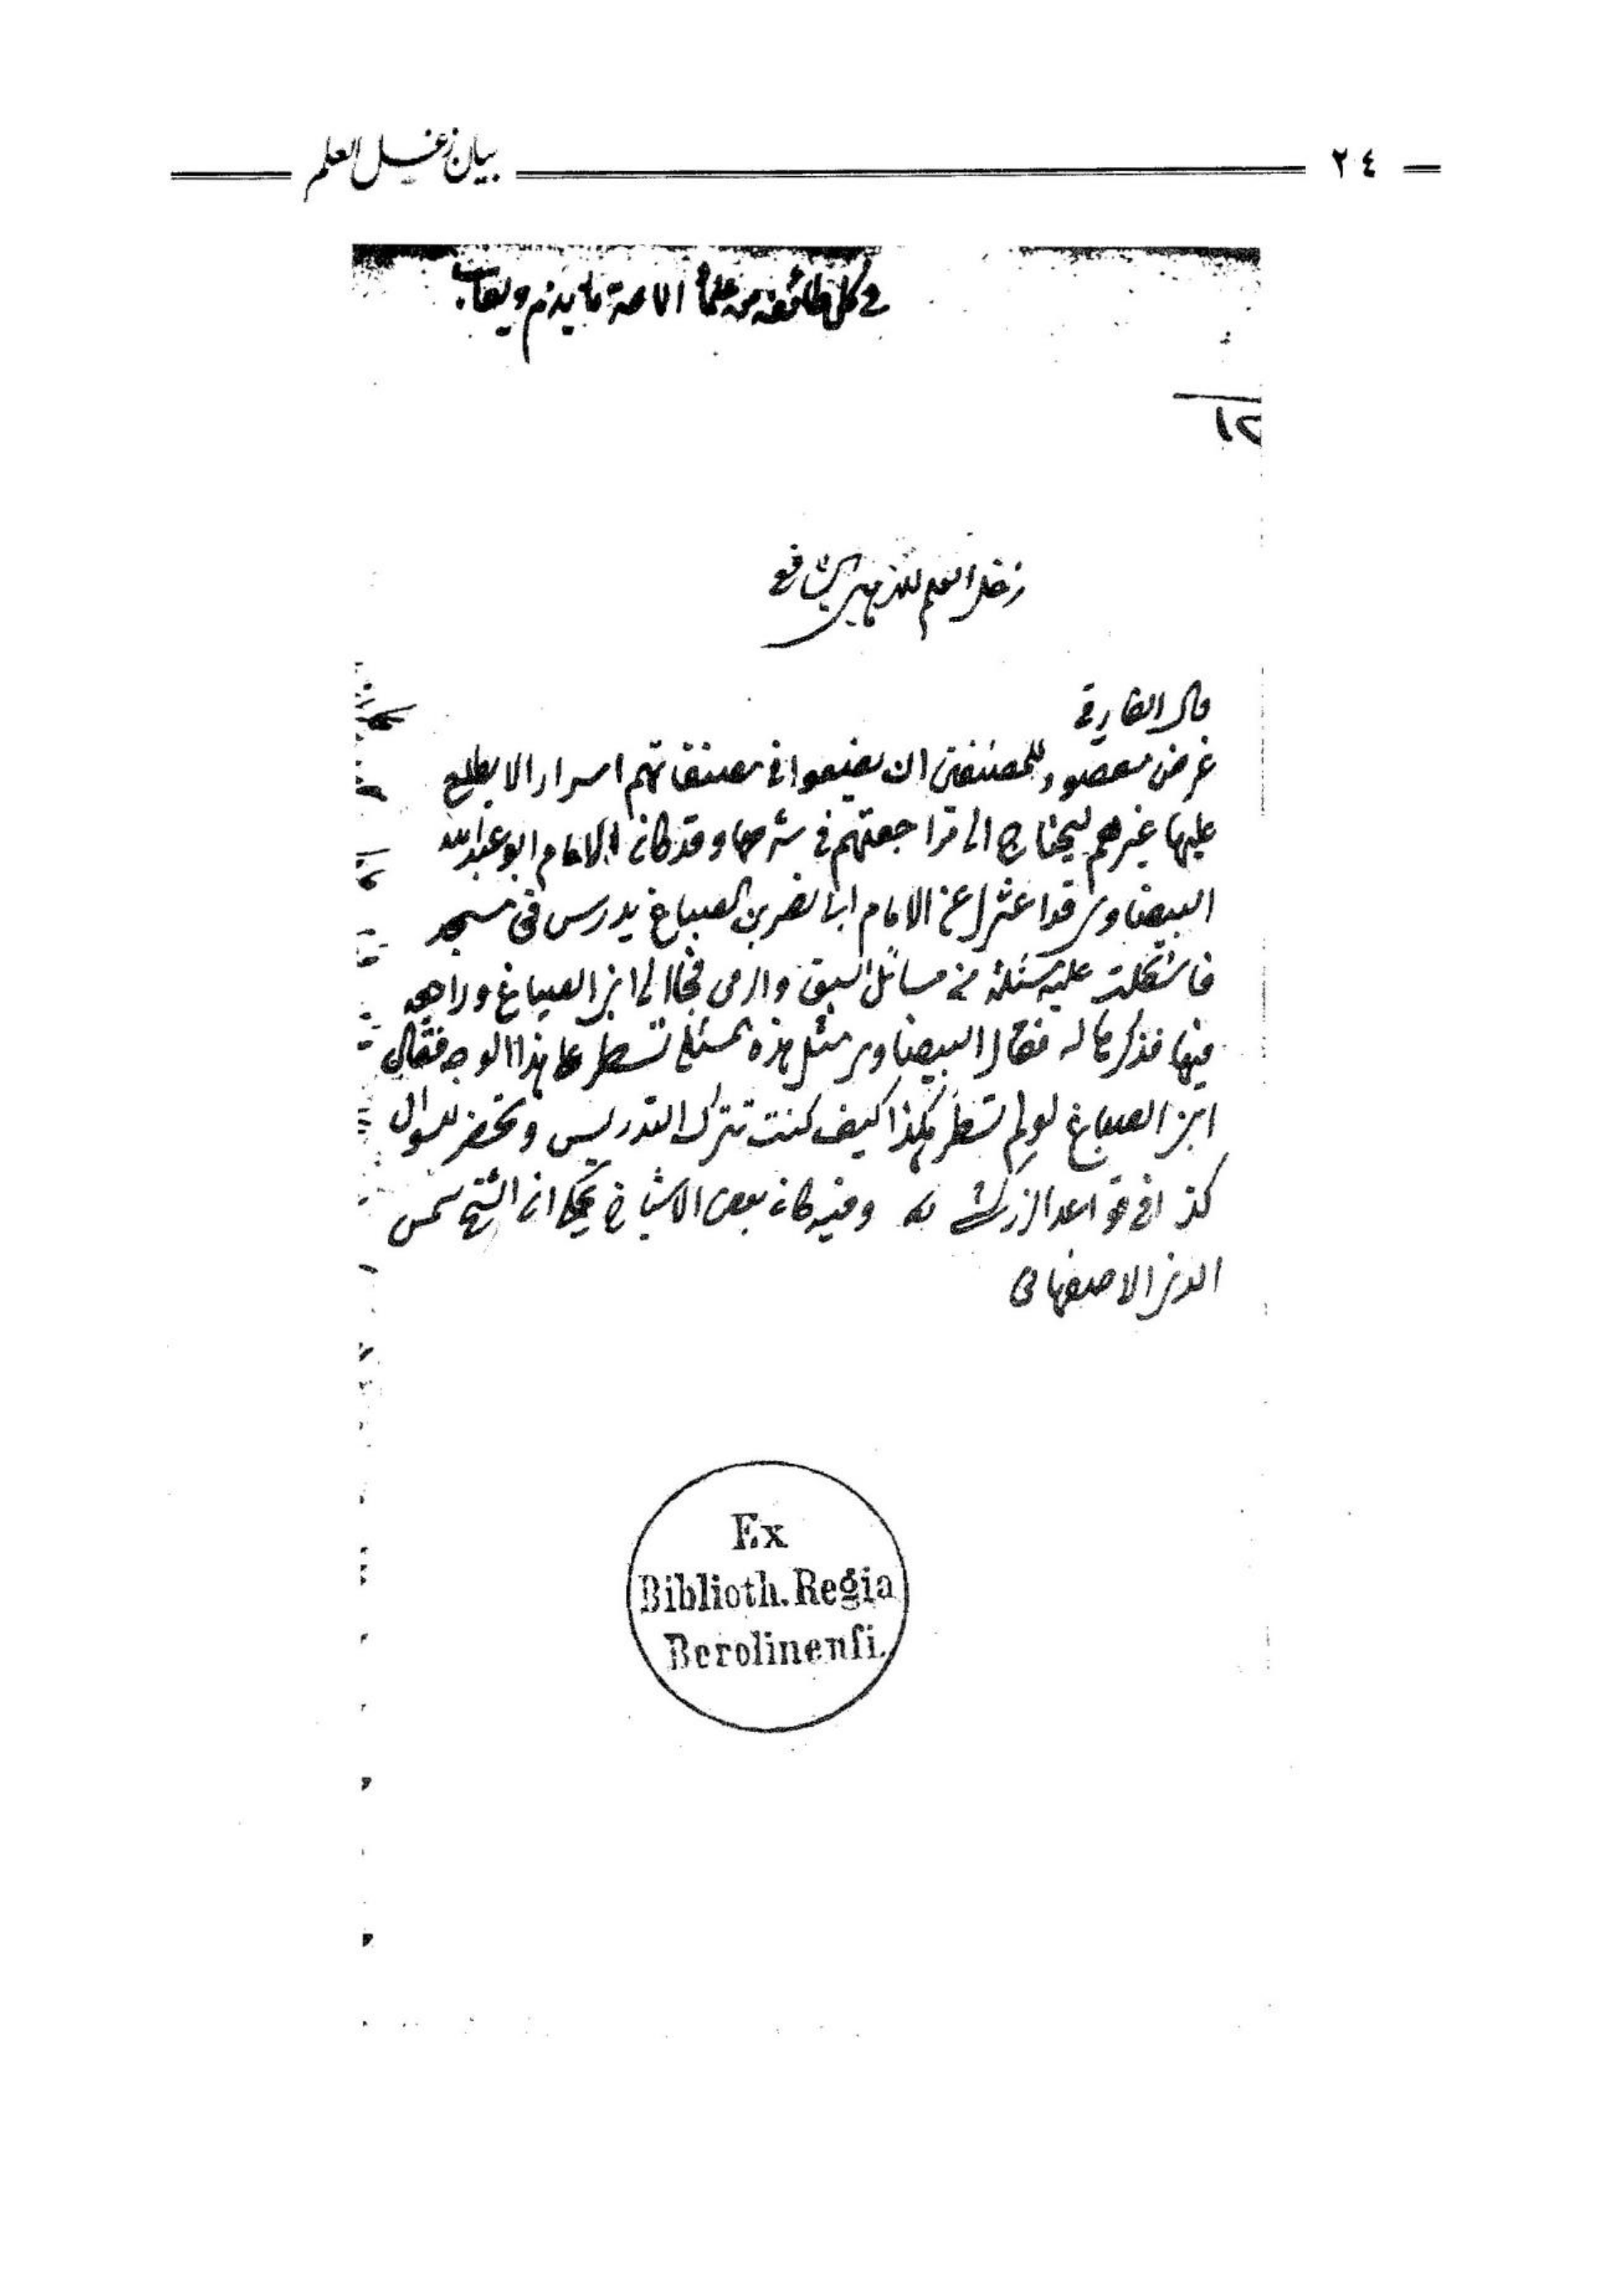 ٢٤
بيان زغل العلم
في كل طائفة من علماء الامة ما يذم ويعاب
١٢
زغل العلم للذهبي الشافعي
قال الفارقي
غرض مقصود للمصنفين ان يضيعوا في مصنفاتهم اسرارا لا يطلع
عليها غيرهم ليحتاج الى مراجعتهم في شرحها وقد كان الامام ابو عبد الله
البيضاوي قد اعتزل عن الامام ابا نصر بن الصباغ يدرس في مسجد
فاشكلت عليه مسئلة من مسائل السبق والرمي فجاا لى ابن الصباغ وراجعه
فيها فذكرها له فقال البيضاوي مثل هذه المسئلة تسطر على هذا الوجه فقال
ابن الصباغ لو لم تسطر هكذا كيف كنت تترك التدريس وتحضر للسوال
كذا في قواعد الزركشي وفيه كان بعض الاشياخ يحكي ان الشيخ شمس
الدين الاصفهاني
Ex
Biblioth. Regia
Berolinenſi.